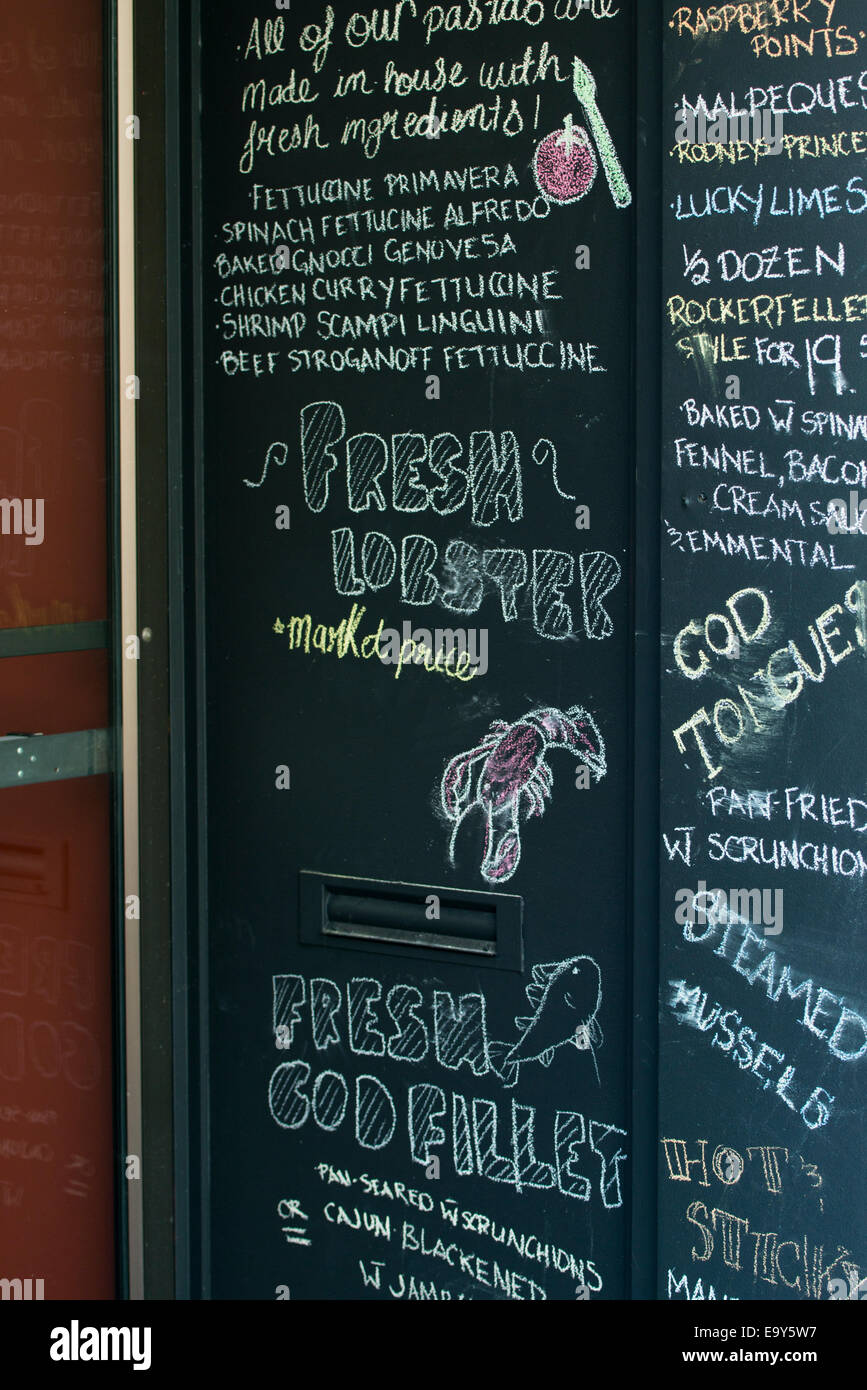 ·All of our pastas are
made in house with
fresh ingredients!
·FETTUCCINE PRIMAVERA
·SPINACH FETTUCINE ALFREDO
·BAKED GNOCCI GENOVESA
·CHICKEN CURRY FETTUCCINE
·SHRIMP SCAMPI LINGUINI
·BEEF STROGANOFF FETTUCCINE
FRESH
LOBSTER
*market price
FRESH
COD FILLET
PAN-SEARED W̄ SCRUNCHIONS
OR CAJUN BLACKENED
W̄
·RASPBERRY
POINTS·
·MALPEQUES
·RODNEYS PRINCE
·LUCKY LIMES
½ DOZEN
ROCKERFELLE
STYLE FOR 19.
·BAKED W̄ SPINA
FENNEL, BACON
CREAM SAU
& EMMENTAL
COD
TONGUES
PAN-FRIED
W̄ SCRUNCHION
STEAMED
MUSSELS
HOT &
STICK
alamy
Image ID: E9Y5W7
www.alamy.com